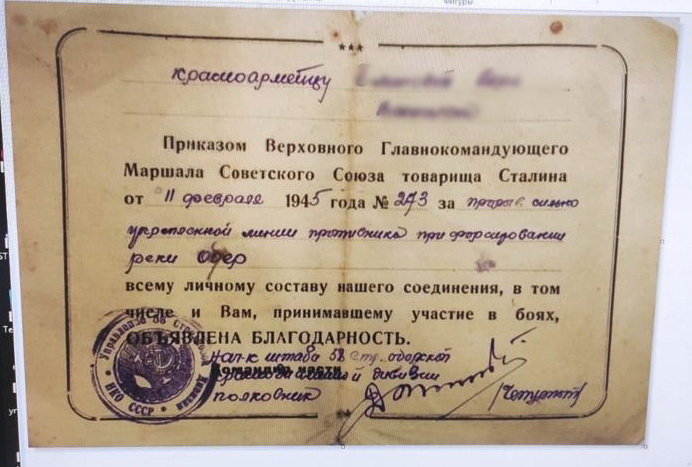 Фигуры
красноармейцу
Приказом Верховного Главнокомандующего
Маршала Советского Союза товарища Сталина
от 11 февраля 1945 года № 273 за прорыв сильно
укрепленной линии противника при форсировании
реки Одер
всему личному составу нашего соединения, в том
числе и Вам, принимавшему участие в боях,
ОБЪЯВЛЕНА БЛАГОДАРНОСТЬ.
Нач-к штаба 58 стр. одерской
Командир части
краснознаменной дивизии
полковник
НКО СССР